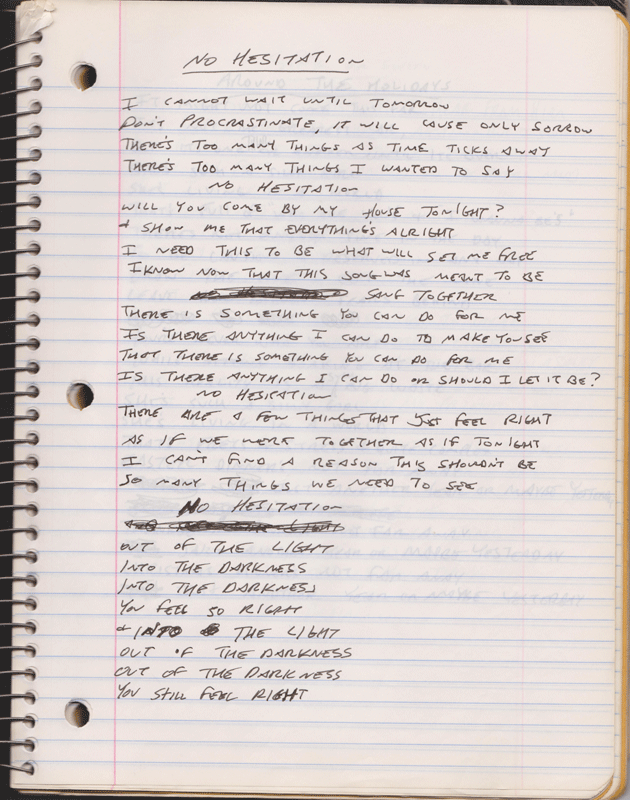 NO HESITATION
AROUND THE HOLIDAYS
I CANNOT WAIT UNTIL TOMORROW
DON'T PROCRASTINATE, IT WILL CAUSE ONLY SORROW
THERE'S TOO MANY THINGS AS TIME TICKS AWAY
THERE'S TOO MANY THINGS I WANTED TO SAY
NO HESITATION
WILL YOU COME BY MY HOUSE TONIGHT?
& SHOW ME THAT EVERYTHING'S ALRIGHT
I NEED THIS TO BE WHAT WILL SET ME FREE
I KNOW NOW THAT THIS SONG WAS MEANT TO BE
SANG TOGETHER
THERE IS SOMETHING YOU CAN DO FOR ME
IS THERE ANYTHING I CAN DO TO MAKE YOU SEE
THAT THERE IS SOMETHING YOU CAN DO FOR ME
IS THERE ANYTHING I CAN DO OR SHOULD I LET IT BE?
NO HESITATION
THERE ARE A FEW THINGS THAT JUST FEEL RIGHT
AS IF WE WERE TOGETHER AS IF TONIGHT
I CAN'T FIND A REASON THIS SHOULDN'T BE
SO MANY THINGS WE NEED TO SEE
NO HESITATION
OUT OF THE LIGHT
INTO THE DARKNESS
INTO THE DARKNESS
YOU FEEL SO RIGHT
& INTO THE LIGHT
OUT OF THE DARKNESS
OUT OF THE DARKNESS
YOU STILL FEEL RIGHT